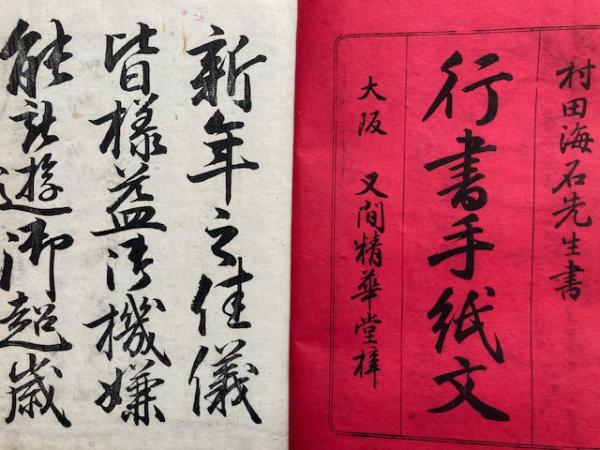 村田海石先生書
行書手紙文
大阪 又間精華堂梓
新年之佳儀
皆様益御機嫌
能被遊御超歳